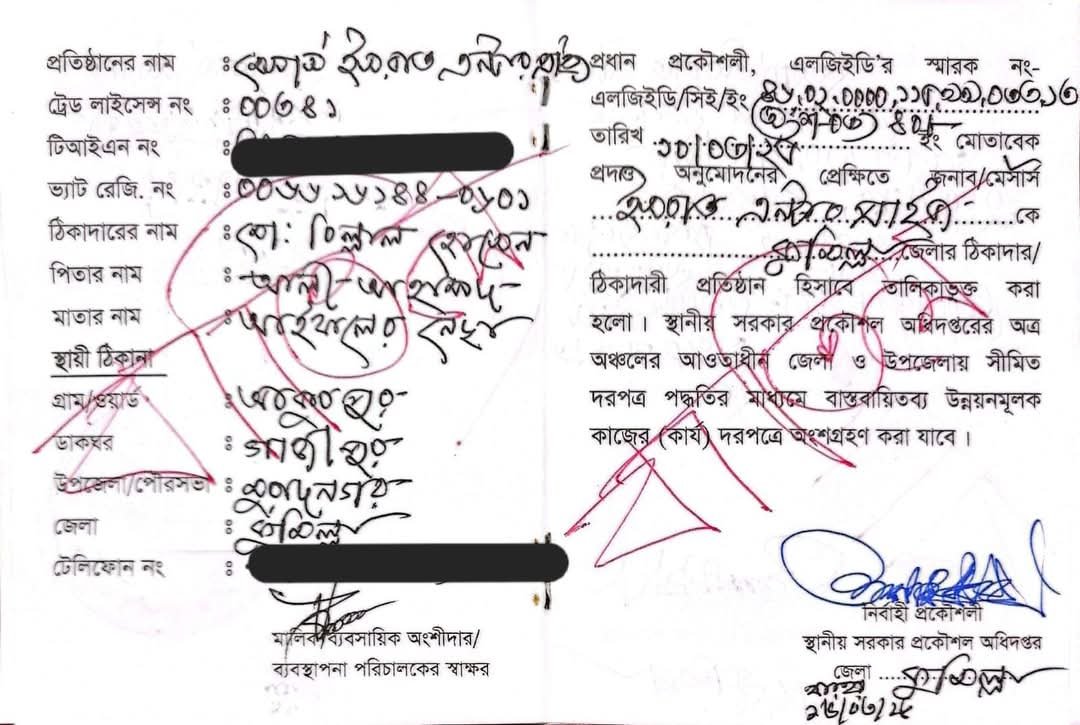 প্রতিষ্ঠানের নাম : মেসার্স ইসরাত এন্টারপ্রাইজ
ট্রেড লাইসেন্স নং : ০০৩৪১
টিআইএন নং :
ভ্যাট রেজি. নং :
ঠিকাদারের নাম : মো: বিল্লাল হোসেন
পিতার নাম : আলী আহাম্মদ
মাতার নাম : নেছা
স্থায়ী ঠিকানা
গ্রাম/ওয়ার্ড : আকুবপুর
ডাকঘর : গাজীপুর
উপজেলা/পৌরসভা : মুরাদনগর
জেলা : কুমিল্লা
টেলিফোন নং :
মালিক/ব্যবসায়িক অংশীদার/
ব্যবস্থাপনা পরিচালকের স্বাক্ষর
প্রধান প্রকৌশলী, এলজিইডি'র স্মারক নং-
এলজিইডি/সিই/ইং
তারিখ ইং মোতাবেক
প্রদত্ত অনুমোদনের প্রেক্ষিতে জনাব/মেসার্স
ইসরাত এন্টারপ্রাইজ কে
কুমিল্লা জেলার ঠিকাদার/
ঠিকাদারী প্রতিষ্ঠান হিসাবে তালিকাভুক্ত করা
হলো। স্থানীয় সরকার প্রকৌশল অধিদপ্তরের অত্র
অঞ্চলের আওতাধীন জেলা ও উপজেলায় সীমিত
দরপত্র পদ্ধতির মাধ্যমে বাস্তবায়িতব্য উন্নয়নমূলক
কাজের (কার্য) দরপত্রে অংশগ্রহণ করা যাবে।
নির্বাহী প্রকৌশলী
স্থানীয় সরকার প্রকৌশল অধিদপ্তর
জেলা কুমিল্লা